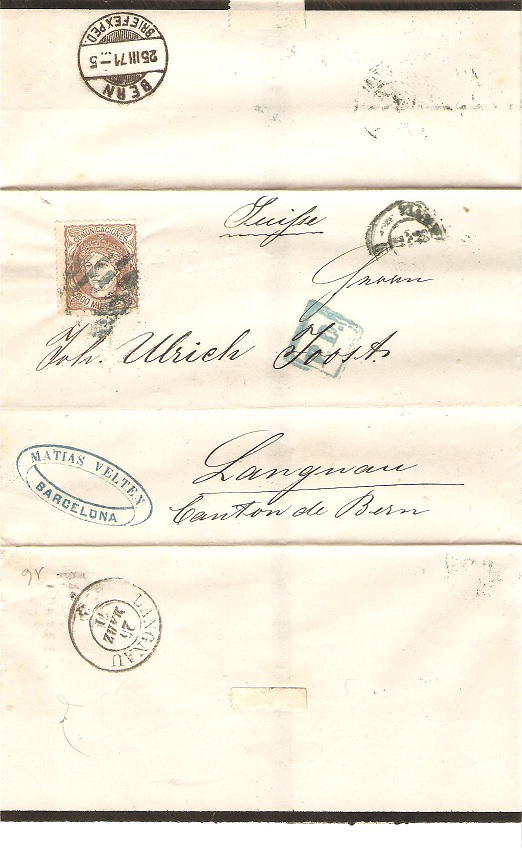 BERN
25 III 71 – 5
BRIEFEXPED.
Suisse
COMUNICACIONES
Herrn
P.D.
Joh. Ulrich Joost
MATIAS VELTEN
BARCELONA
Langnau
Canton de Bern
LANGNAU
25
MARZ
71